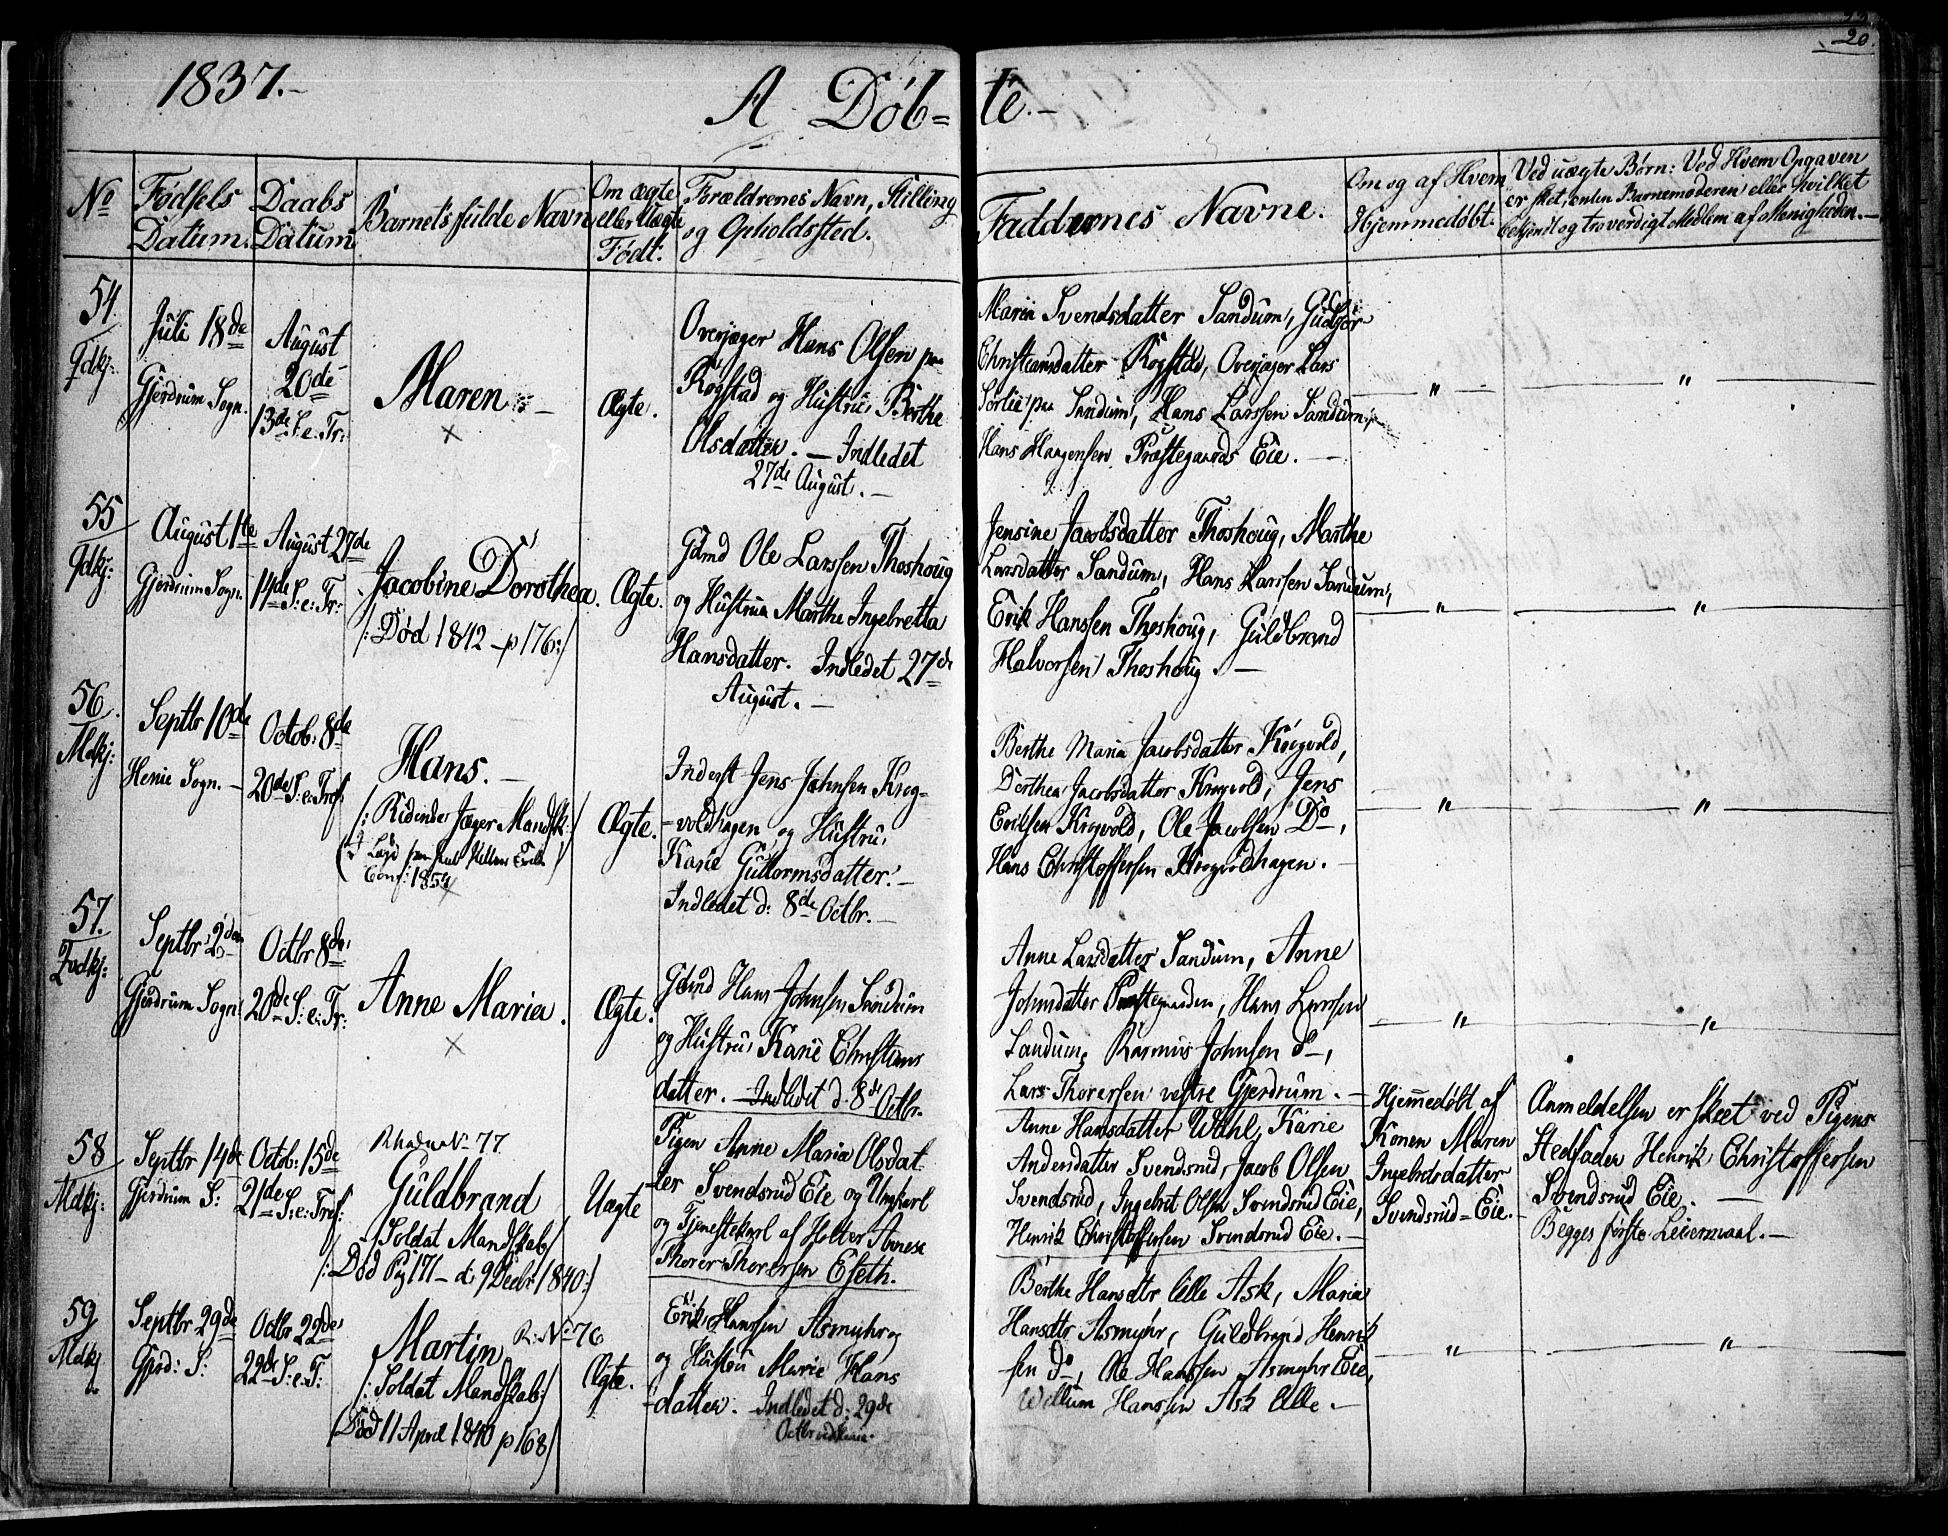 20.
1837.-
A Döb= te.-
No
Födsels Datum.
Daabs Datum
Barnets fulde Navn
Om ægte eller Uægte Födt.
Forældrenes Navn, Stilling og Opholdssted.
Faddernes Navne.
Om og af Hvem Hjemmedöbt.
Ved uægte Börn: Ved Hvem Opgaven
er skeet, enten Barnemoderen eller hvilket
bekjendt og troverdigt Medlem af Menigheden.-
54.
Juli 18de
Gjerdrum Sogn.
August
20de
13de S. e. Tr:
Maren
Ægte.
Overjæger Hans Olsen paa
Rogstad og Hustru Berthe
Olsdatter. - Indledet
27de August. -
Maria Svendsdatter Sandum, Gudjör
Christiansdatter Rogstad, Overjæger Lars
Sörlie paa Sandum, Hans Larssen Sandum,
Hans Haagensen Præstegaards Eie. -
" "
55
August 1te
Gjerdrum Sogn.
August 27de
14de S: e: Tr:
Jacobine Dorothea.
/: Död 1842 - p 176:/
Ægte.
Gdmd Ole Larssen Thoshoug
og Hustrue Marthe Ingebretta
Hansdatter. Indledet 27de
August. -
Jensine Jacobsdatter Thoshoug, Marthe
Larsdatter Sandum, Hans Larssen Sandum,
Erik Hanssen Thoshoug, Guldbrand
Halvorsen Thoshoug. -
" "
56.
Septbr 10de
Henie Sogn. -
Octob: 8de
20de S: e: Tref
Hans. -
/: Ridende Jæger Mandsk:/
Conf: 1854
Ægte.
Inderst Jens Johnsen Krog=
=voldhagen og Hustru,
Karie Guttormsdatter. -
Indledet d: 8de Octbr. -
Berthe Maria Jacobsdatter Krogvold,
Dorthea Jacobsdatter Krogvold, Jens
Eriksen Krogvold, Ole Jacobsen Do,
Hans Christoffersen Krogvoldhagen. -
" "
57.
Septbr 2den
Gjerdrum Sogn
Octbr 8de
20de S: e: Tr:
Anne Maria.
Ægte.
Gdmd Hans Johnsen Sandum
og Hustru, Karie Christians
datter. - Indledet d. 8de Octbr.
Anne Larsdatter Sandum, Anne
Johnsdatter Præstegaarden, Hans Larssen
Sandum, Rasmus Johnsen do,
Lars Thorersen vestre Gjerdrum. -
" "
58
Septbr 14de
Gjerdrum S:
Octob: 15de
21de S: e: Tref:
No 77
Guldbrand
/: Soldat Mandskab/
/: Död Pag 171 - d: 9 Decbr 1840:/
Uægte
Pigen Anne Maria Olsdat
ter Svendsrud Eie og Ungkarl
og Tjenestekarl af Holter Annex
Thorer Thorersen Eseth.
Anne Hansdatter Wahl, Karie
Andersdatter Svendsrud, Jacob Olsen
Svendsrud, Ingebret Olsen Svendsrud Eie,
Henrik Christoffersen Svendsrud Eie. -
Hjemmedöbt af
Konen Maren
Ingebrtsdatter
Svendsrud=Eie.
Anmeldelsen er skeet ved Pigens
Stedfader Henrik Christoffersen
Svendsrud Eie. -
Begges förste Leiermaal. -
59
Septbr 29de
Gjerd: S:
Octbr 22de
22de S: e: T:
Martin R: No 76
/: Soldat Mandskab:/
(Död 11 April 1840 p 168)
Ægte.
Erik Hanssen Asmyhr
og Hustru Marie Hans
datter. - Indledet d: 29de
Octbr
Berthe Hansdtr lille Ask, Maria
Hansdtr Asmyhr, Guldbrand Henrik
sen do, Ole Hanssen Asmyhr Eie,
Willum Hanssen Ask lille. -
" "